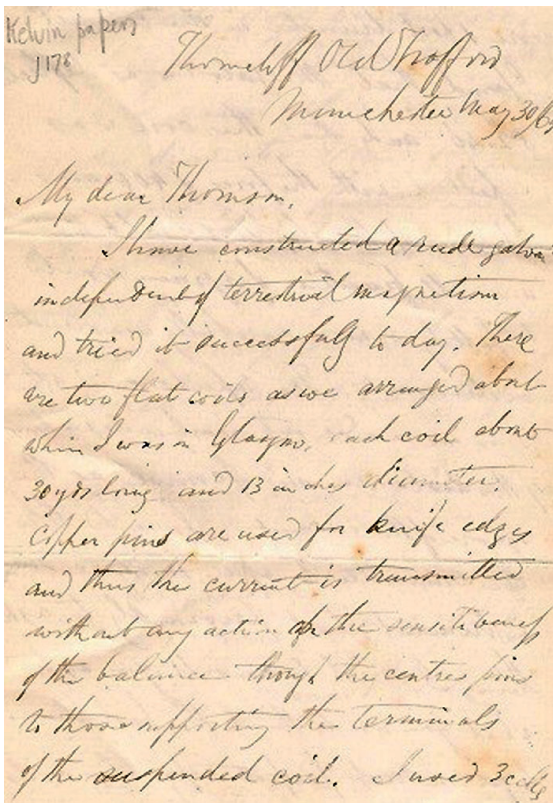 Kelvin papers
J178
Thorncliff Old Trafford
Manchester May 30/6
My dear Thomson,
I have constructed a rude galva
independent of terrestrial magnetism
and tried it successfully to day. There
are two flat coils as we arranged about
when I was in Glasgow, each coil about
30 yds long and 13 inches diameter.
Copper pins are used for knife edges
and thus the current is transmitted
without any action on the sensitiveness
of the balance through the centres pins
to those supporting the terminals
of the suspended coil. I used 3 cells